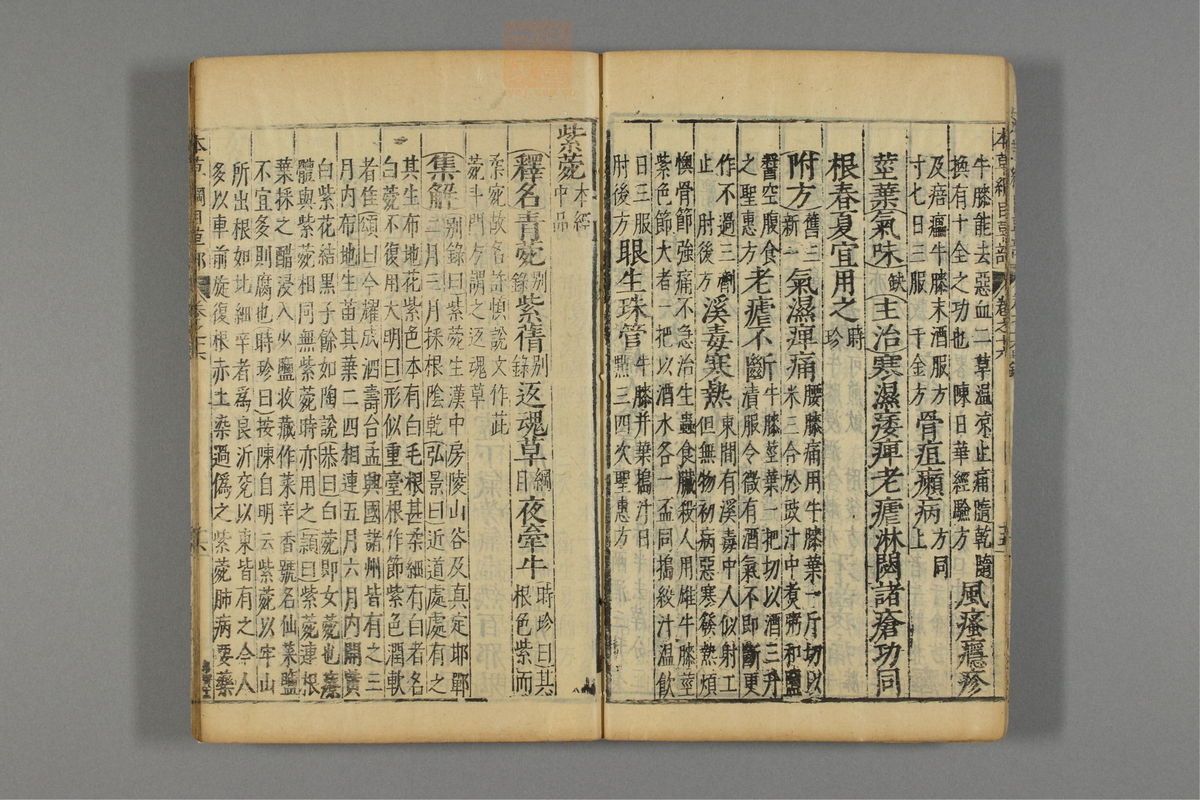 本草綱目草部 卷之十六 五
牛膝能去惡血二草溫涼止痛隨乾隨
換有十全之功也 陳日華經驗方 風瘙癮疹
及痦㿔牛膝末酒服方
寸七日三服 千金方 骨疽癩病 方同上
莖葉氣味缺主治寒濕痿痺老瘧淋閟諸瘡功同
根春夏宜用之時珍
附方舊三新一氣濕痺痛腰膝痛用牛膝葉一斤切以
米三合於豉汁中煮粥和鹽
醬空腹食
之聖惠方老瘧不斷牛膝莖葉一把切以酒三升
漬服令微有酒氣不即斷更
作不過三劑
止 肘後方溪毒寒熱東間有溪毒中人似射工
但無物初病惡寒發熱煩
懊骨節強痛不急治生蟲食臟殺人用雄牛膝莖
紫色節大者一把以酒水各一盃同搗絞汁溫飲
日三服
肘後方眼生珠管牛膝并葉搗汁日
點三四次聖惠方
紫菀本經中品
釋名青菀別錄紫蒨別錄返魂草綱目夜牽牛時珍曰其
根色紫而
柔宛故名許慎說文作茈
菀斗門方謂之返魂草
集解別錄曰紫菀生漢中房陵山谷及真定邯鄲
二月三月採根陰乾弘景曰近道處處有之
其生布地花紫色本有白毛根甚柔細有白者名
白菀不復用大明曰形似重臺根作節紫色潤軟
者佳頌曰今耀成泗壽台孟興國諸州皆有之三
月內布地生苗其葉二四相連五月六月內開黃
白紫花結黑子餘如陶說恭曰白菀即女菀也療
體與紫菀相同無紫菀時亦用之頴曰紫菀連根
葉採之醋浸入少鹽收藏作菜辛香號名仙菜鹽
不宜多則腐也時珍曰按陳自明云紫菀以牢山
所出根如北細辛者為良沂兗以東皆有之今人
多以車前旋復根赤土染過偽之紫菀肺病要藥
本草綱目草部 卷之十六 六